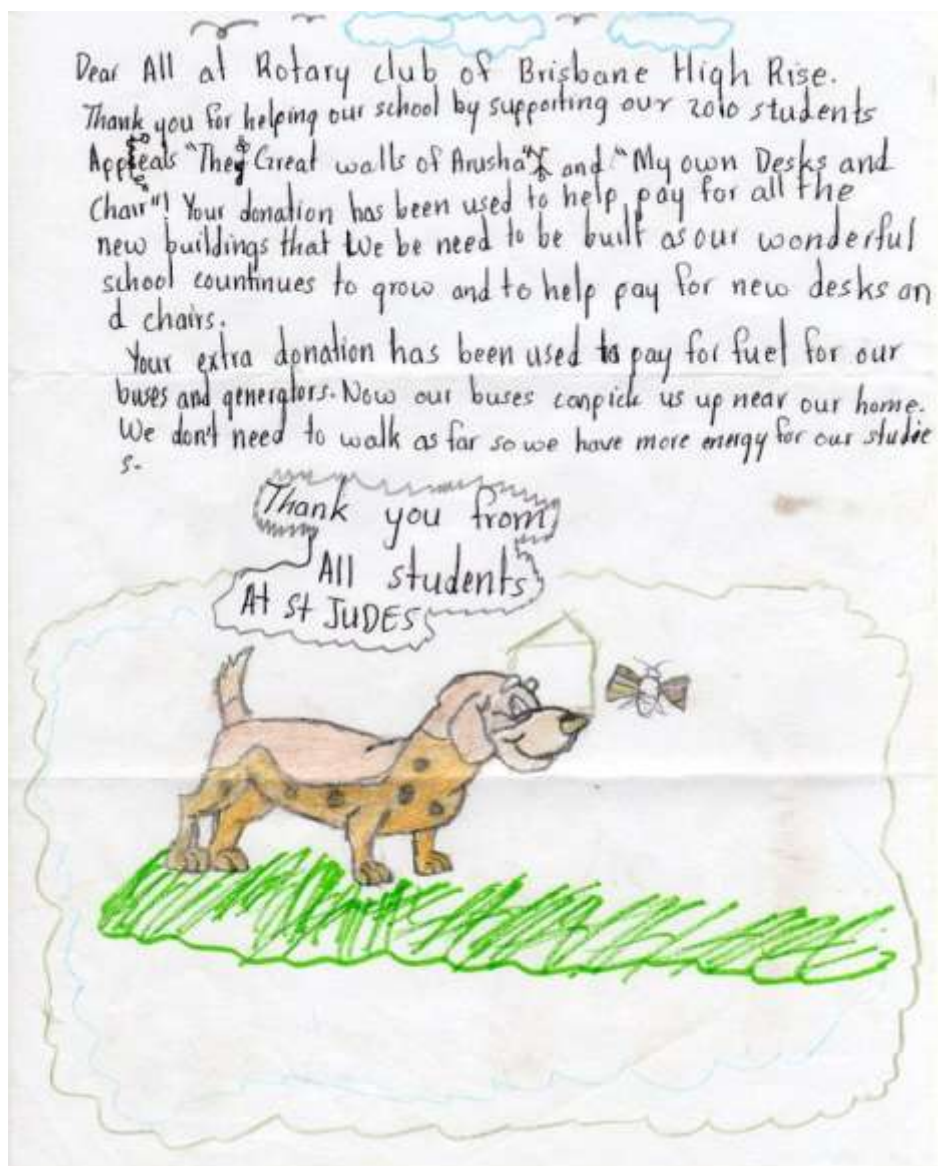 Dear All at Rotary club of Brisbane High Rise.
Thank you for helping our school by supporting our 2010 students
Appeals "The Great walls of Arusha" and "My own Desks and
Chair"! Your donation has been used to help pay for all the
new buildings that we be need to be built as our wonderful
school countinues to grow and to help pay for new desks an
d chairs.
Your extra donation has been used to pay for fuel for our
buses and generators. Now our buses can pick us up near our home.
We don't need to walk as far so we have more energy for our studie
s.
Thank you from
All students
At st JUDES